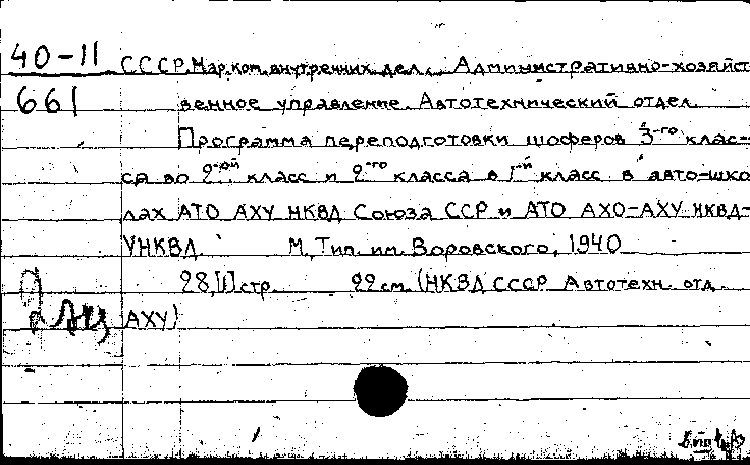 40-11 СССР. Нар. ком. внутренних дел. Административно-хозяйст-
661 венное управление. Автотехнический отдел.
Программа переподготовки шоферов 3-го клас-
са во 2-ой класс и 2-го класса в 1-й класс в авто-шко-
лах АТО АХУ НКВД Союза ССР и АТО АХО-АХУ НКВД-
УНКВД. М., Тип. им. Воровского, 1940
28, [1] стр. 22 см. (НКВД СССР Автотехн. отд.
АХУ)